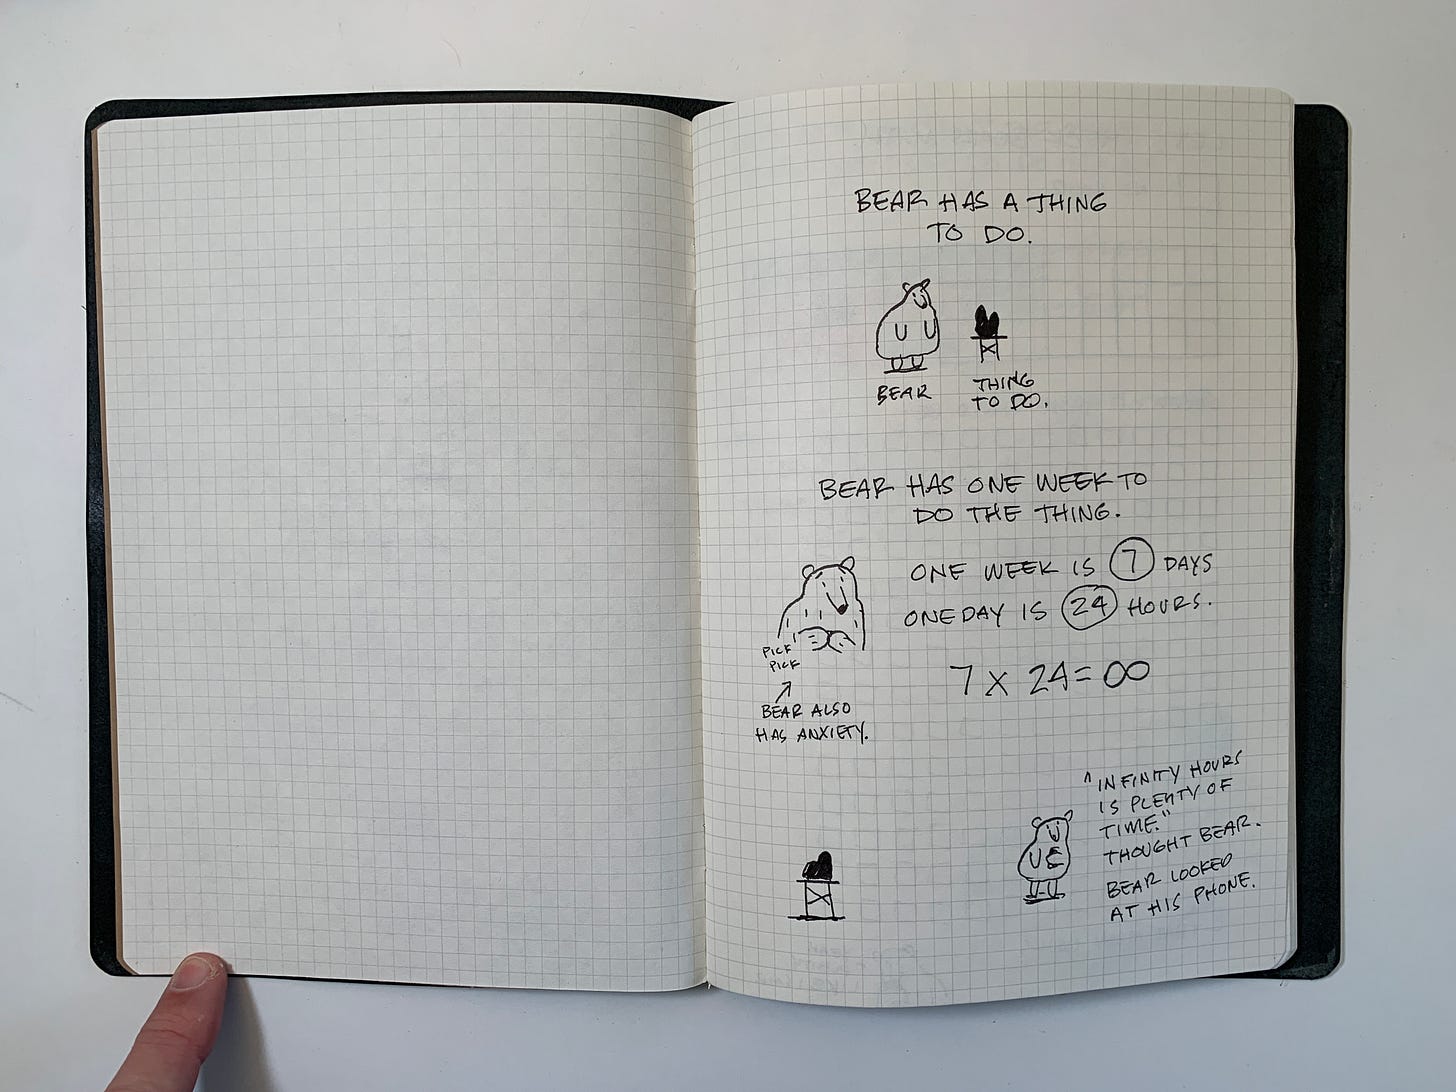 BEAR HAS A THING
TO DO.
BEAR
THING
TO DO.
BEAR HAS ONE WEEK TO
DO THE THING.
ONE WEEK IS 7 DAYS
ONE DAY IS 24 HOURS.
7 X 24 = ∞
PICK
PICK
BEAR ALSO
HAS ANXIETY.
"INFINITY HOURS
IS PLENTY OF
TIME."
THOUGHT BEAR.
BEAR LOOKED
AT HIS PHONE.